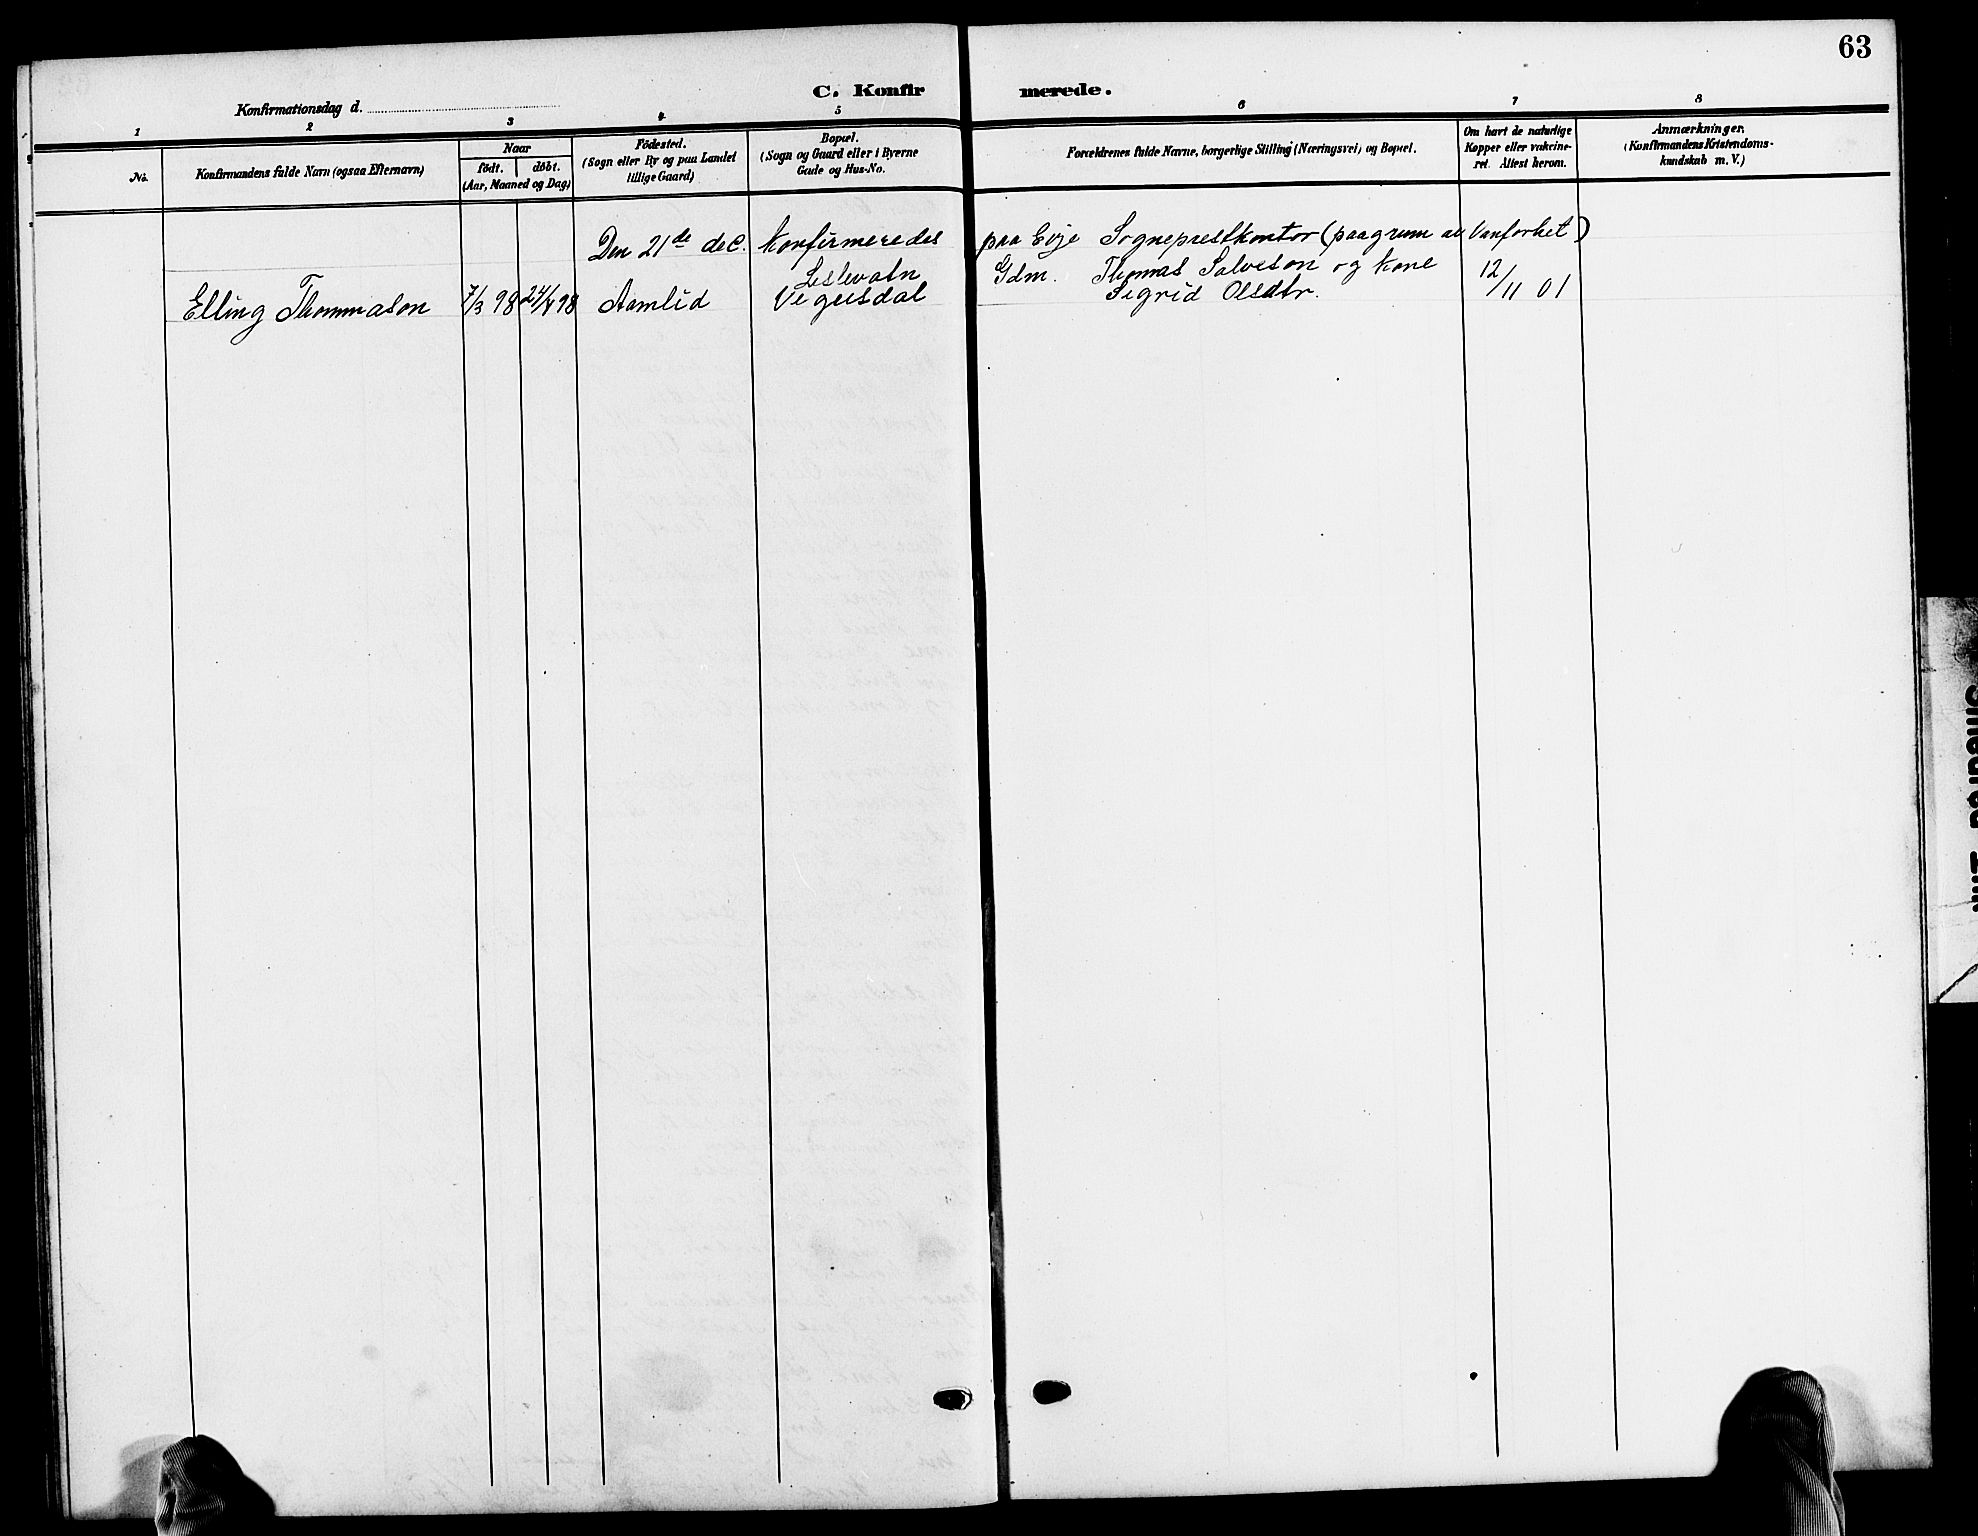 63
C. Konfirmerede.
Konfirmationsdag d.
1 2 3 4 5 6 7 8
No.
Konfirmandens fulde Navn (ogsaa Efternavn)
Naar
födt. döbt.
(Aar, Maaned og Dag)
Födested.
(Sogn eller By og paa Landet
tillige Gaard)
Bopæl.
(Sogn og Gaard eller i Byerne
Gade og Hus-No.
Forældrenes fulde Navne, borgerlige Stilling (Næringsvei) og Bopæl.
Om havt de naturlige
Kopper eller vakcine-
ret. Attest herom.
Anmærkninger.
(Konfirmandens Kristendoms-
kundskab m. V.)
Den 21de dec. Konfirmeredes paa Evje Sogneprestkontor (paagrunn av Vanforhet)
Elling Thommason 7/3 98 24/4 98 Aamlid
Lislevatn
Vegusdal
Gdm. Thomas Salveson og kone
Sigrid Olsdtr.
12/11 01